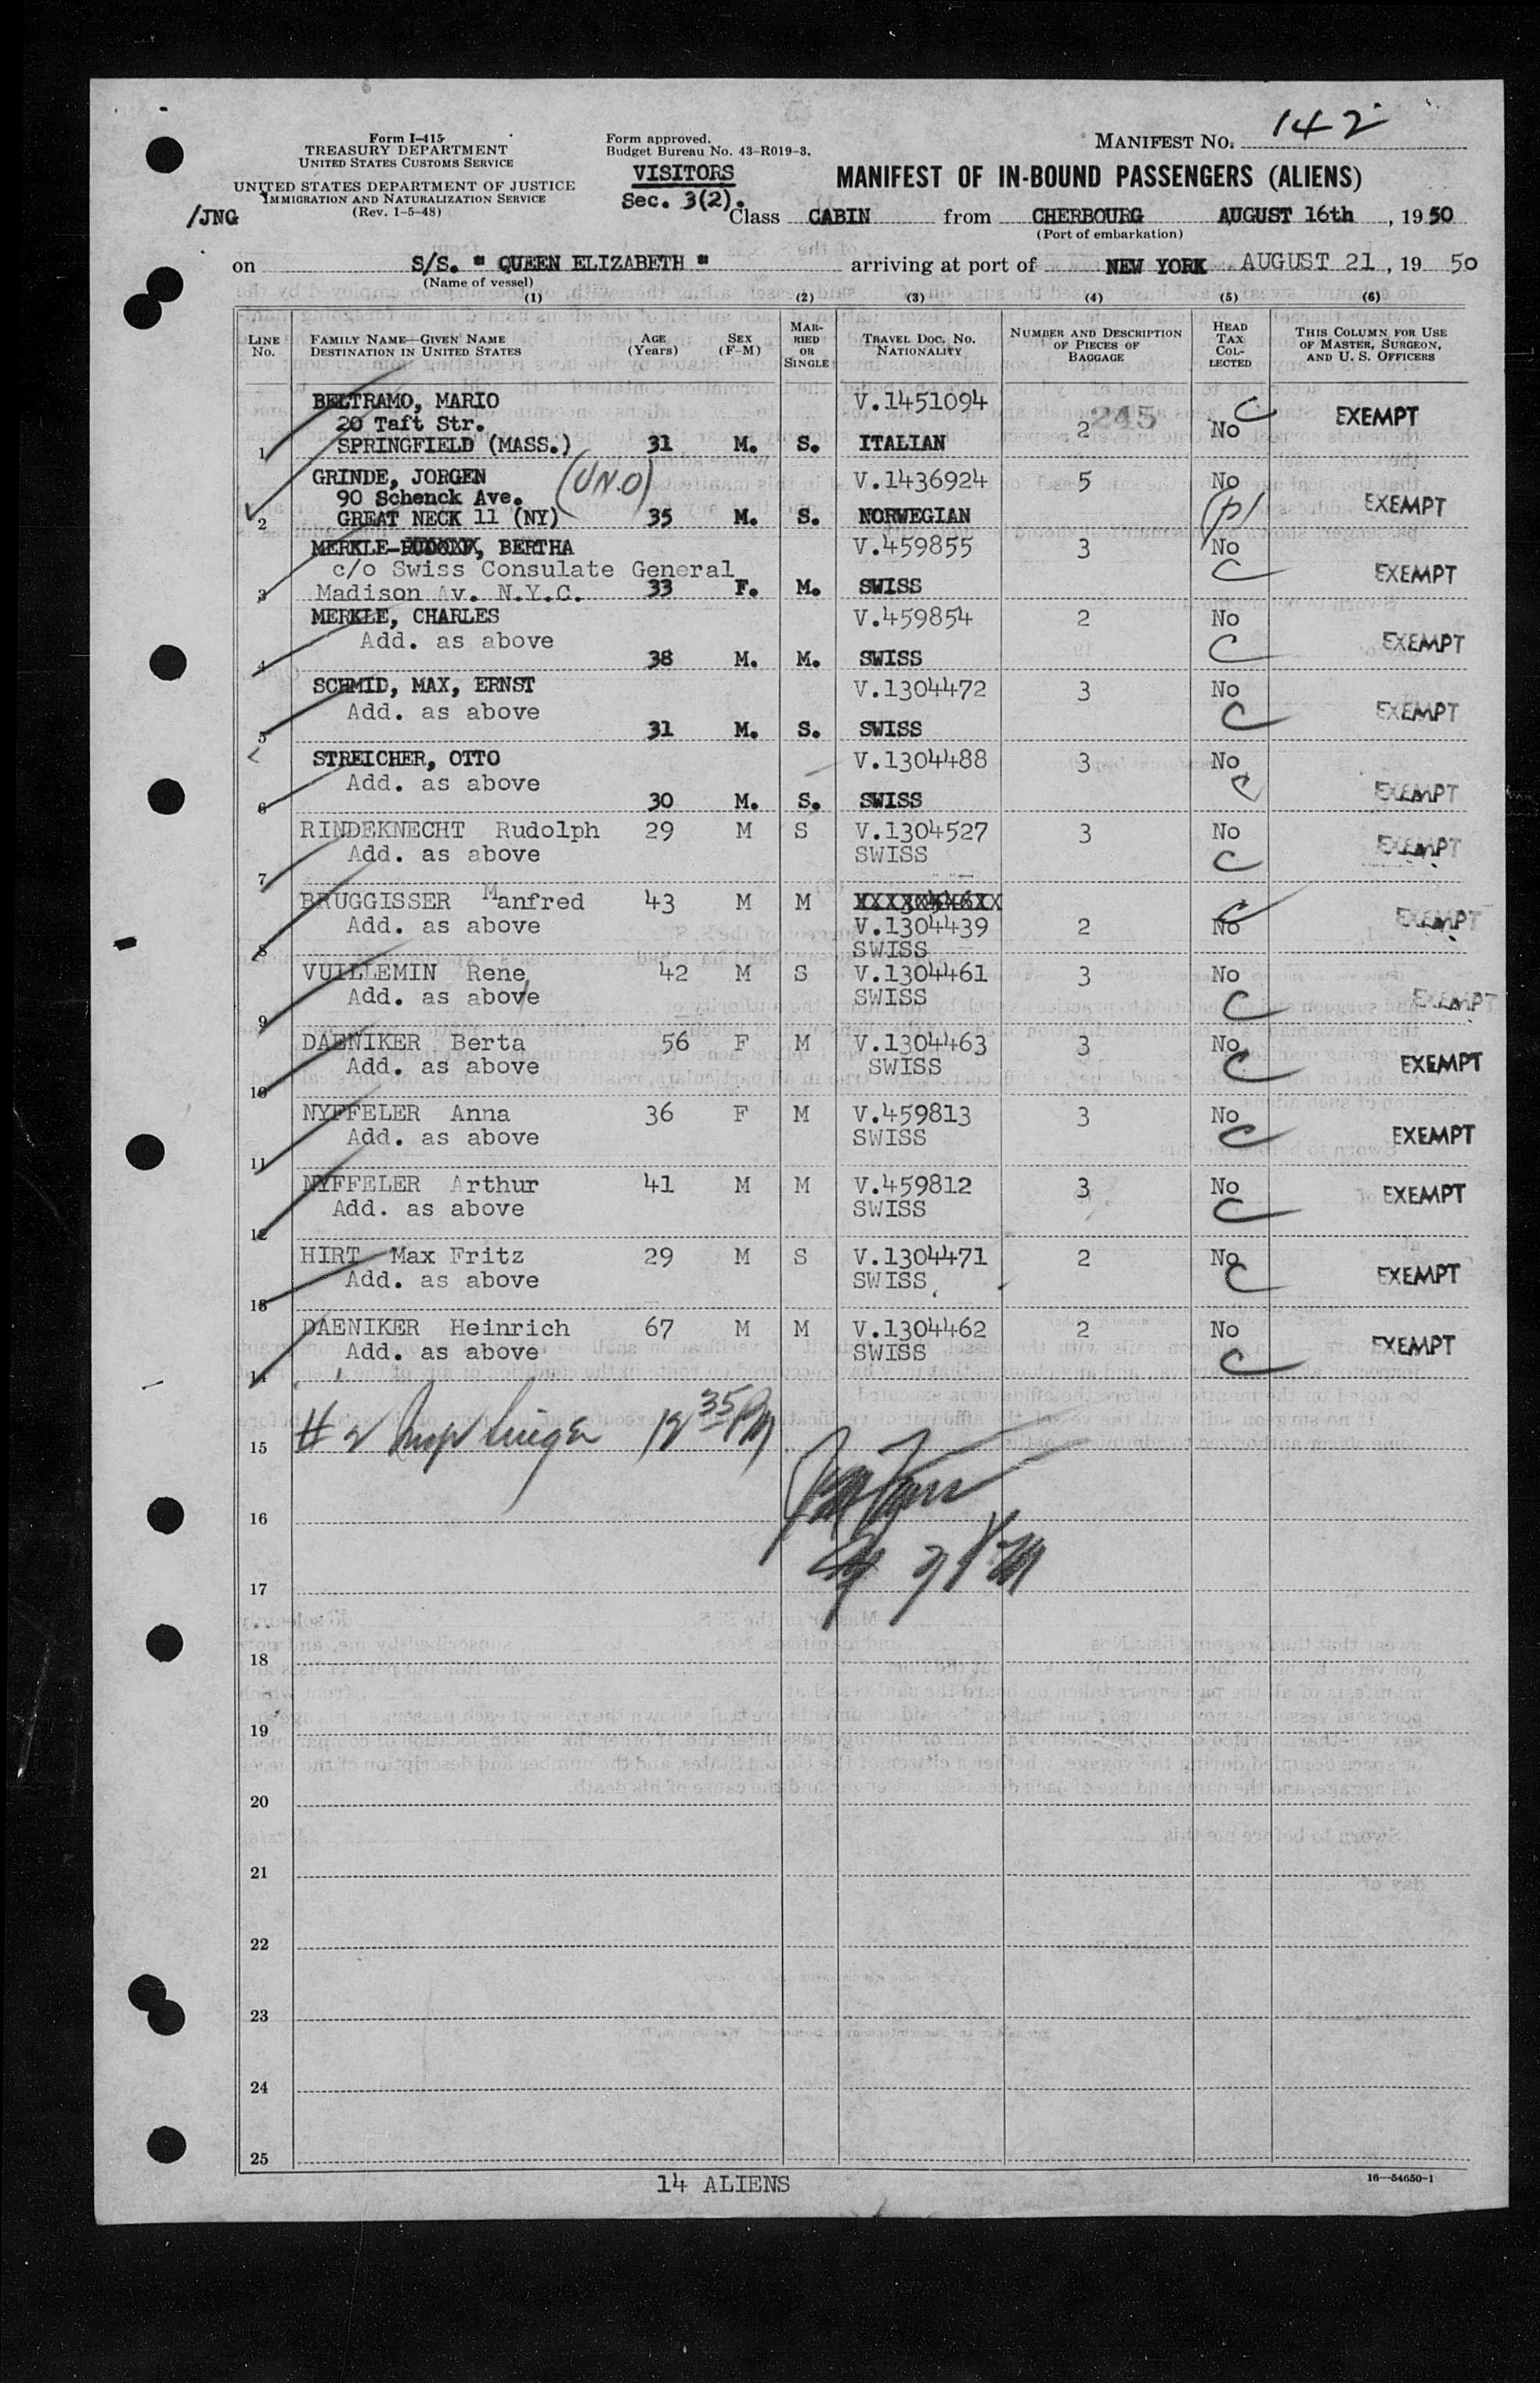 Form I-415
TREASURY DEPARTMENT
UNITED STATES CUSTOMS SERVICE
UNITED STATES DEPARTMENT OF JUSTICE
IMMIGRATION AND NATURALIZATION SERVICE
(Rev. 1-5-48)
/JNG
Form approved.
Budget Bureau No. 43-R019-3.
VISITORS
Sec. 3(2).
MANIFEST NO. 142
MANIFEST OF IN-BOUND PASSENGERS (ALIENS)
Class CABIN from CHERBOURG AUGUST 16th, 1950
(Port of embarkation)
on S/S. " QUEEN ELIZABETH " arriving at port of NEW YORK AUGUST 21, 19 50
(Name of vessel)
(1) (2) (3) (4) (5) (6)
LINE No. FAMILY NAME—GIVEN NAME DESTINATION IN UNITED STATES AGE (Years) SEX (F-M) MARRIED OR SINGLE TRAVEL DOC. NO. NATIONALITY NUMBER AND DESCRIPTION OF PIECES OF BAGGAGE HEAD TAX COLLECTED THIS COLUMN FOR USE OF MASTER, SURGEON, AND U. S. OFFICERS
BELTRAMO, MARIO V.1451094 C EXEMPT
20 Taft Str. 245 2 No
1 SPRINGFIELD (MASS.) 31 M. S. ITALIAN
GRINDE, JORGEN (U.N.O) V.1436924 5 No
90 Schenck Ave. (P) EXEMPT
2 GREAT NECK 11 (NY) 35 M. S. NORWEGIAN
MERKLE-, BERTHA V.459855 3 No
c/o Swiss Consulate General C EXEMPT
3 Madison Av. N.Y.C. 33 F. M. SWISS
MERKLE, CHARLES V.459854 2 No
Add. as above C EXEMPT
4 38 M. M. SWISS
SCHMID, MAX, ERNST V.1304472 3 No
Add. as above C EXEMPT
5 31 M. S. SWISS
STREICHER, OTTO V.1304488 3 No
Add. as above C EXEMPT
6 30 M. S. SWISS
RINDEKNECHT Rudolph 29 M S V.1304527 3 No
Add. as above SWISS C EXEMPT
7
BRUGGISSER Manfred 43 M M C EXEMPT
Add. as above V.1304439 2 No
8 SWISS
VUILLEMIN Rene 42 M S V.1304461 3 No
Add. as above SWISS C EXEMPT
9
DAENIKER Berta 56 F M V.1304463 3 No
Add. as above SWISS C EXEMPT
10
NYFFELER Anna 36 F M V.459813 3 No
Add. as above SWISS C EXEMPT
11
NYFFELER Arthur 41 M M V.459812 3 No EXEMPT
Add. as above SWISS C
12
HIRT Max Fritz 29 M S V.1304471 2 No
Add. as above SWISS C EXEMPT
13
DAENIKER Heinrich 67 M M V.1304462 2 No
Add. as above SWISS C EXEMPT
14
15 # 2 12 35 PM
16
17
18
19
20
21
22
23
24
25
14 ALIENS
16—54650-1